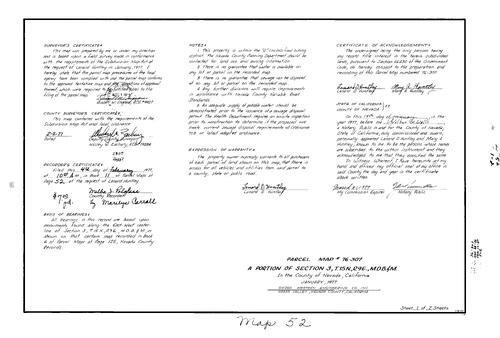 SURVEYOR'S CERTIFICATE
This map was prepared by me or under my direction
and is based upon a field survey made in conformance
with the requirements of the Subdivision Map Act at
the request of Lenard Huntley in January, 1977. I
hereby state that the parcel map procedures of the local
agency have been complied with and the map conforms
to the approved tentative map and the conditions of approval
thereof which were required to be fulfilled prior to the
filing of the parcel map.
COUNTY SURVEYOR'S CERTIFICATE
This map conforms with the requirements of the
Subdivision Map Act and local ordinance.
RECORDER'S CERTIFICATE
Filed this 4th day of February, 1977,
in Book 11 of Parcel Maps at
Page 52, at the request of Lenard Huntley.
County Recorder
by Marilyn Carroll
BASIS OF BEARINGS
All bearings in this record are based upon
monuments found along the East-West center-
line of Section 3, T.15N., R.9E., M.D.B.&M. as
shown on that certain map recorded in Book
6 of Parcel Maps at Page 125, Nevada County
Records.
NOTES
1. This property is within the
district. The Nevada County Planning Department should be
contacted for land use and zoning information.
2. There is no guarantee that water is available on
any lot or parcel on the recorded map.
3. There is no guarantee that sewage can be disposed
of on any lot or parcel on the recorded map.
4. Any further divisions will require improvements
in accordance with Nevada County Variable Road
Standards.
5. An adequate supply of potable water should be
demonstrated prior to the issuance of a sewage disposal
permit. The Health Department requires an on-site inspection
prior to recordation to determine if the proposed well
meets current sewage disposal requirements of Ordinance
EXPRESSION OF WARRANTY
The property owner expressly warrants to all purchasers
of each parcel of land shown on this map, that there is
access for all vehicles and utilities from said parcel to
a county, state or public road.
Lenard D. Huntley
CERTIFICATE OF ACKNOWLEDGEMENT
The undersigned being the only persons having
any record title interest in the herein subdivided
lands, pursuant to Section 66436 of the Government
Code, do hereby consent to the preparation and
recording of this Parcel Map numbered 76-307.
Lenard D. Huntley
Mary J. Huntley
STATE OF CALIFORNIA
COUNTY OF NEVADA
On this 19th day of January, in the
year 1977, before me
a Notary Public in and for the County of Nevada,
State of California, duly commissioned and sworn,
personally appeared Lenard D. Huntley and Mary J.
Huntley, known to me to be the persons whose names
are subscribed to the within instrument and they
acknowledged to me that they executed the same.
In witness whereof, I have hereunto set my
hand and affixed my official seal at my office in
said County the day and year in the certificate
above written.
My Commission Expires
Notary Public
PARCEL MAP # 76-307
A PORTION OF SECTION 3, T.15N., R.9E., M.D.B.&M.
In the County of Nevada, California
JANUARY, 1977
Sheet 1 of 2 Sheets
Map 52